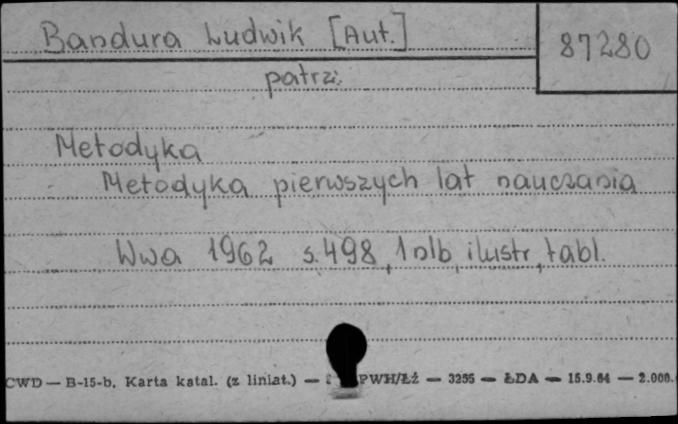 Bandura Ludwik [Aut.]
87280
patrz:
Metodyka
Metodyka pierwszych lat nauczania
Wwa 1962 s. 498, 1 nlb, ilustr, tabl.
CWD — B-15-b. Karta katal. (z liniat.) — PWH/Łż — 3255 — ŁDA — 15.9.64 — 2.000.